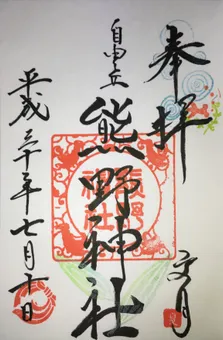 奉拝
文月
自由が丘
熊野神社
平成三十年七月十日